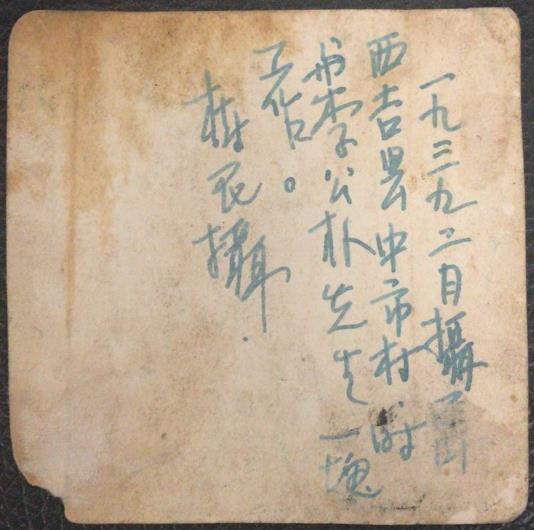 一九三九、二月攝于山
西吉县中市村时
與李公朴先生一塊
工作。
树民攝.